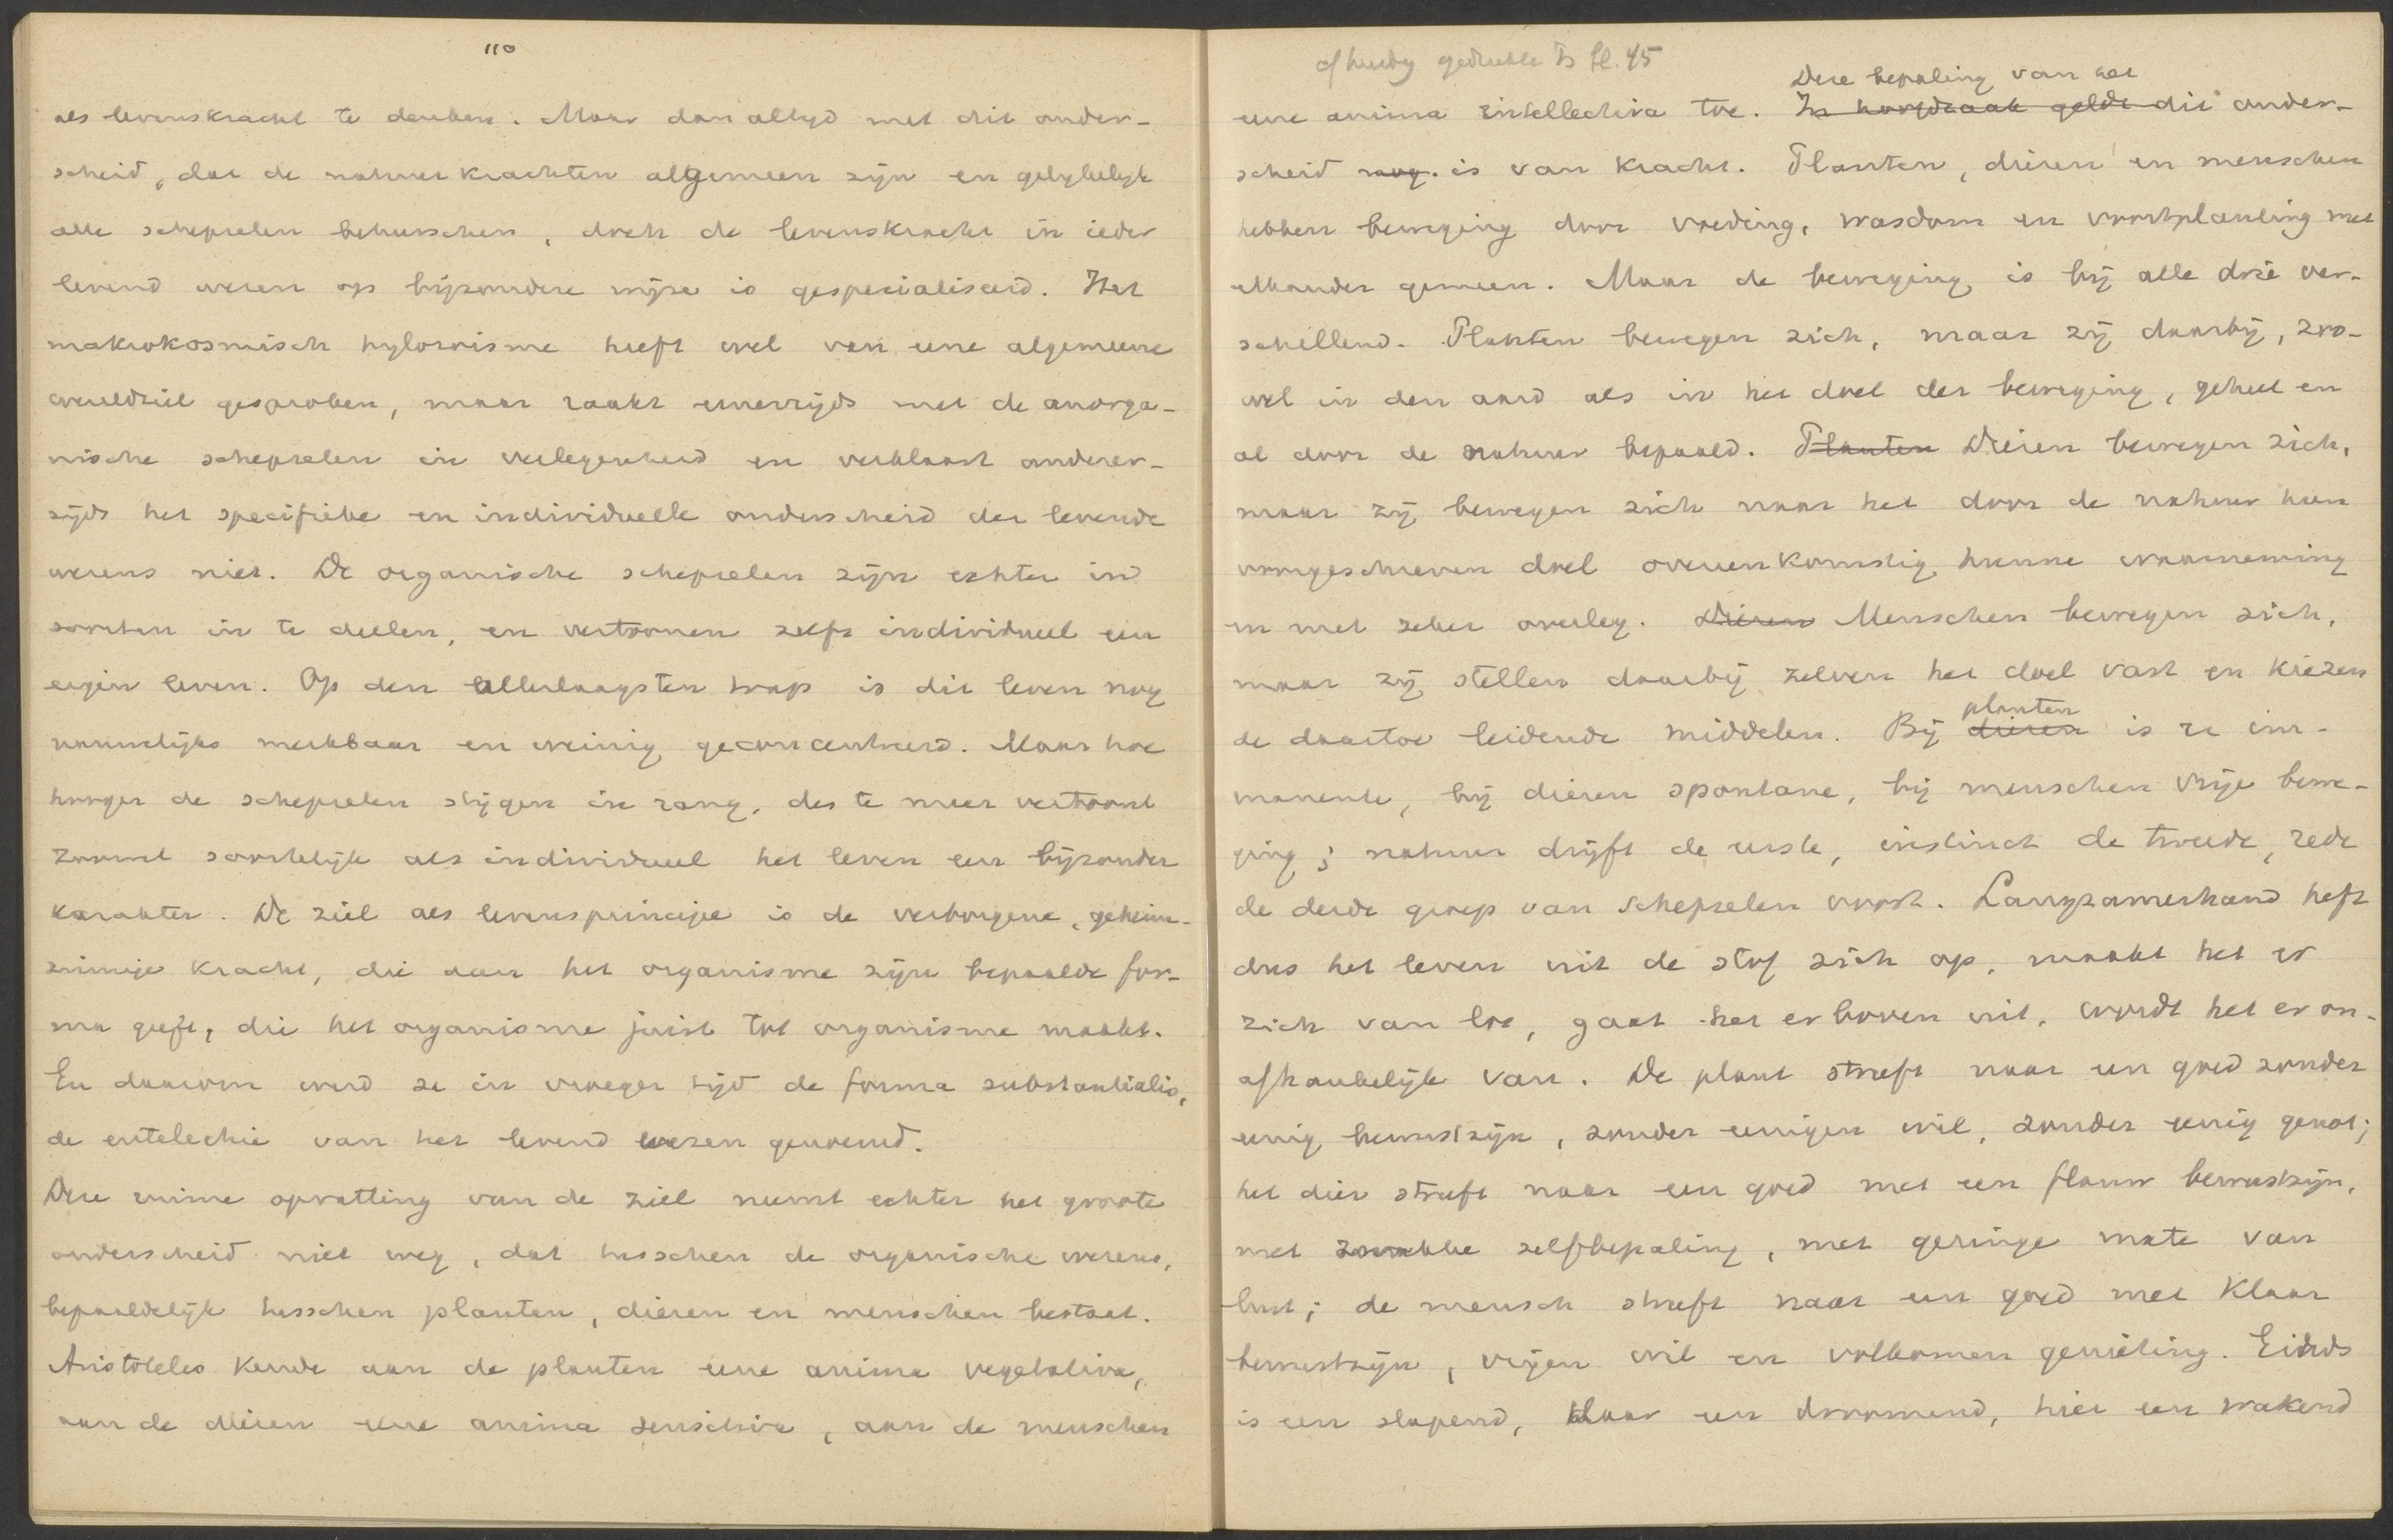 110
als levenskracht te denken. Maar dan altijd met dit onder-
scheid, dat de natuurkrachten algemeen zijn en gelijkelijk
alle schepselen beheerschen, doch de levenskracht in ieder
levend wezen op bijzondere wijze is gespecialiseerd. Het
makrokosmisch hylozoisme heeft wel van eene algemeene
wereldziel gesproken, maar raakt eenerzijds met de anorga-
nische schepselen in verlegenheid en verklaart anderer-
zijds het specifieke en individuelle onderscheid der levende
wezens niet. De organische schepselen zijn echter in
soorten in te deelen, en vertoonen zelfs individueel een
eigen leven. Op den allerlaagsten trap is dit leven nog
nauwelijks merkbaar en weinig geconcentreerd. Maar hoe
hooger de schepselen stijgen in rang, des te meer vertoont
zoowel soortelijk als individueel het leven een bijzonder
karakter. De ziel als levensprincipe is de verborgene, geheim-
zinnige kracht, die aan het organisme zijn bepaalde for-
ma geeft, die het organisme juist tot organisme maakt.
En daarom werd ze in vroeger tijd de forma substantialis,
de entelechie van het levend wezen genoemd.
Deze ruime opvatting van de ziel neemt echter het groote
onderscheid niet weg, dat tusschen de organische wezens,
bepaaldelijk tusschen planten, dieren en menschen bestaat.
Aristoteles kende aan de planten eene anima vegetativa,
aan de dieren eene anima sensitiva, aan de menschen
gedrukte Ts bl. 45
Deze bepaling van het
eene anima intellectiva toe. In hoofdzaak geldt dit onder-
scheid nog. is van kracht. Planten, dieren en menschen
hebben beweging door voeding, wasdom en voortplanting met
elkander gemeen. Maar de beweging is bij alle drie ver-
schillend. Planten bewegen zich, maar zij daarbij, zoo-
wel in den aard als in het doel der beweging, geheel en
al door de natuur bepaald. Planten Dieren bewegen zich,
maar zij bewegen zich naar het door de natuur hun
voorgeschreven doel overeenkomstig hunne waarneming
en met zeker overleg. Dieren Menschen bewegen zich,
maar zij stellen daarbij zelven het doel vast en kiezen
planten
de daartoe leidende middelen. Bij dieren is ze im-
manente, bij dieren spontane, bij menschen vrije bewe-
ging; natuur drijft de eerste, instinct de tweede, rede
de derde groep van schepselen voort. Langzamerhand heft
dus het leven uit de stof zich op, maakt het er
zich van los, gaat het er boven uit, wordt het er on-
afhankelijk van. De plant streeft naar een goed zonder
eenig bewustzijn, zonder eenigen wil, zonder eenig genot;
het dier streeft naar een goed met een flauw bewustzijn,
met zwakke zelfbepaling, met geringe mate van
lust; de mensch streeft naar een goed met klaar
bewustzijn, vrijen wil en volkomen genieting. Eidos
is een slapend, daar een droomend, hier een wakend